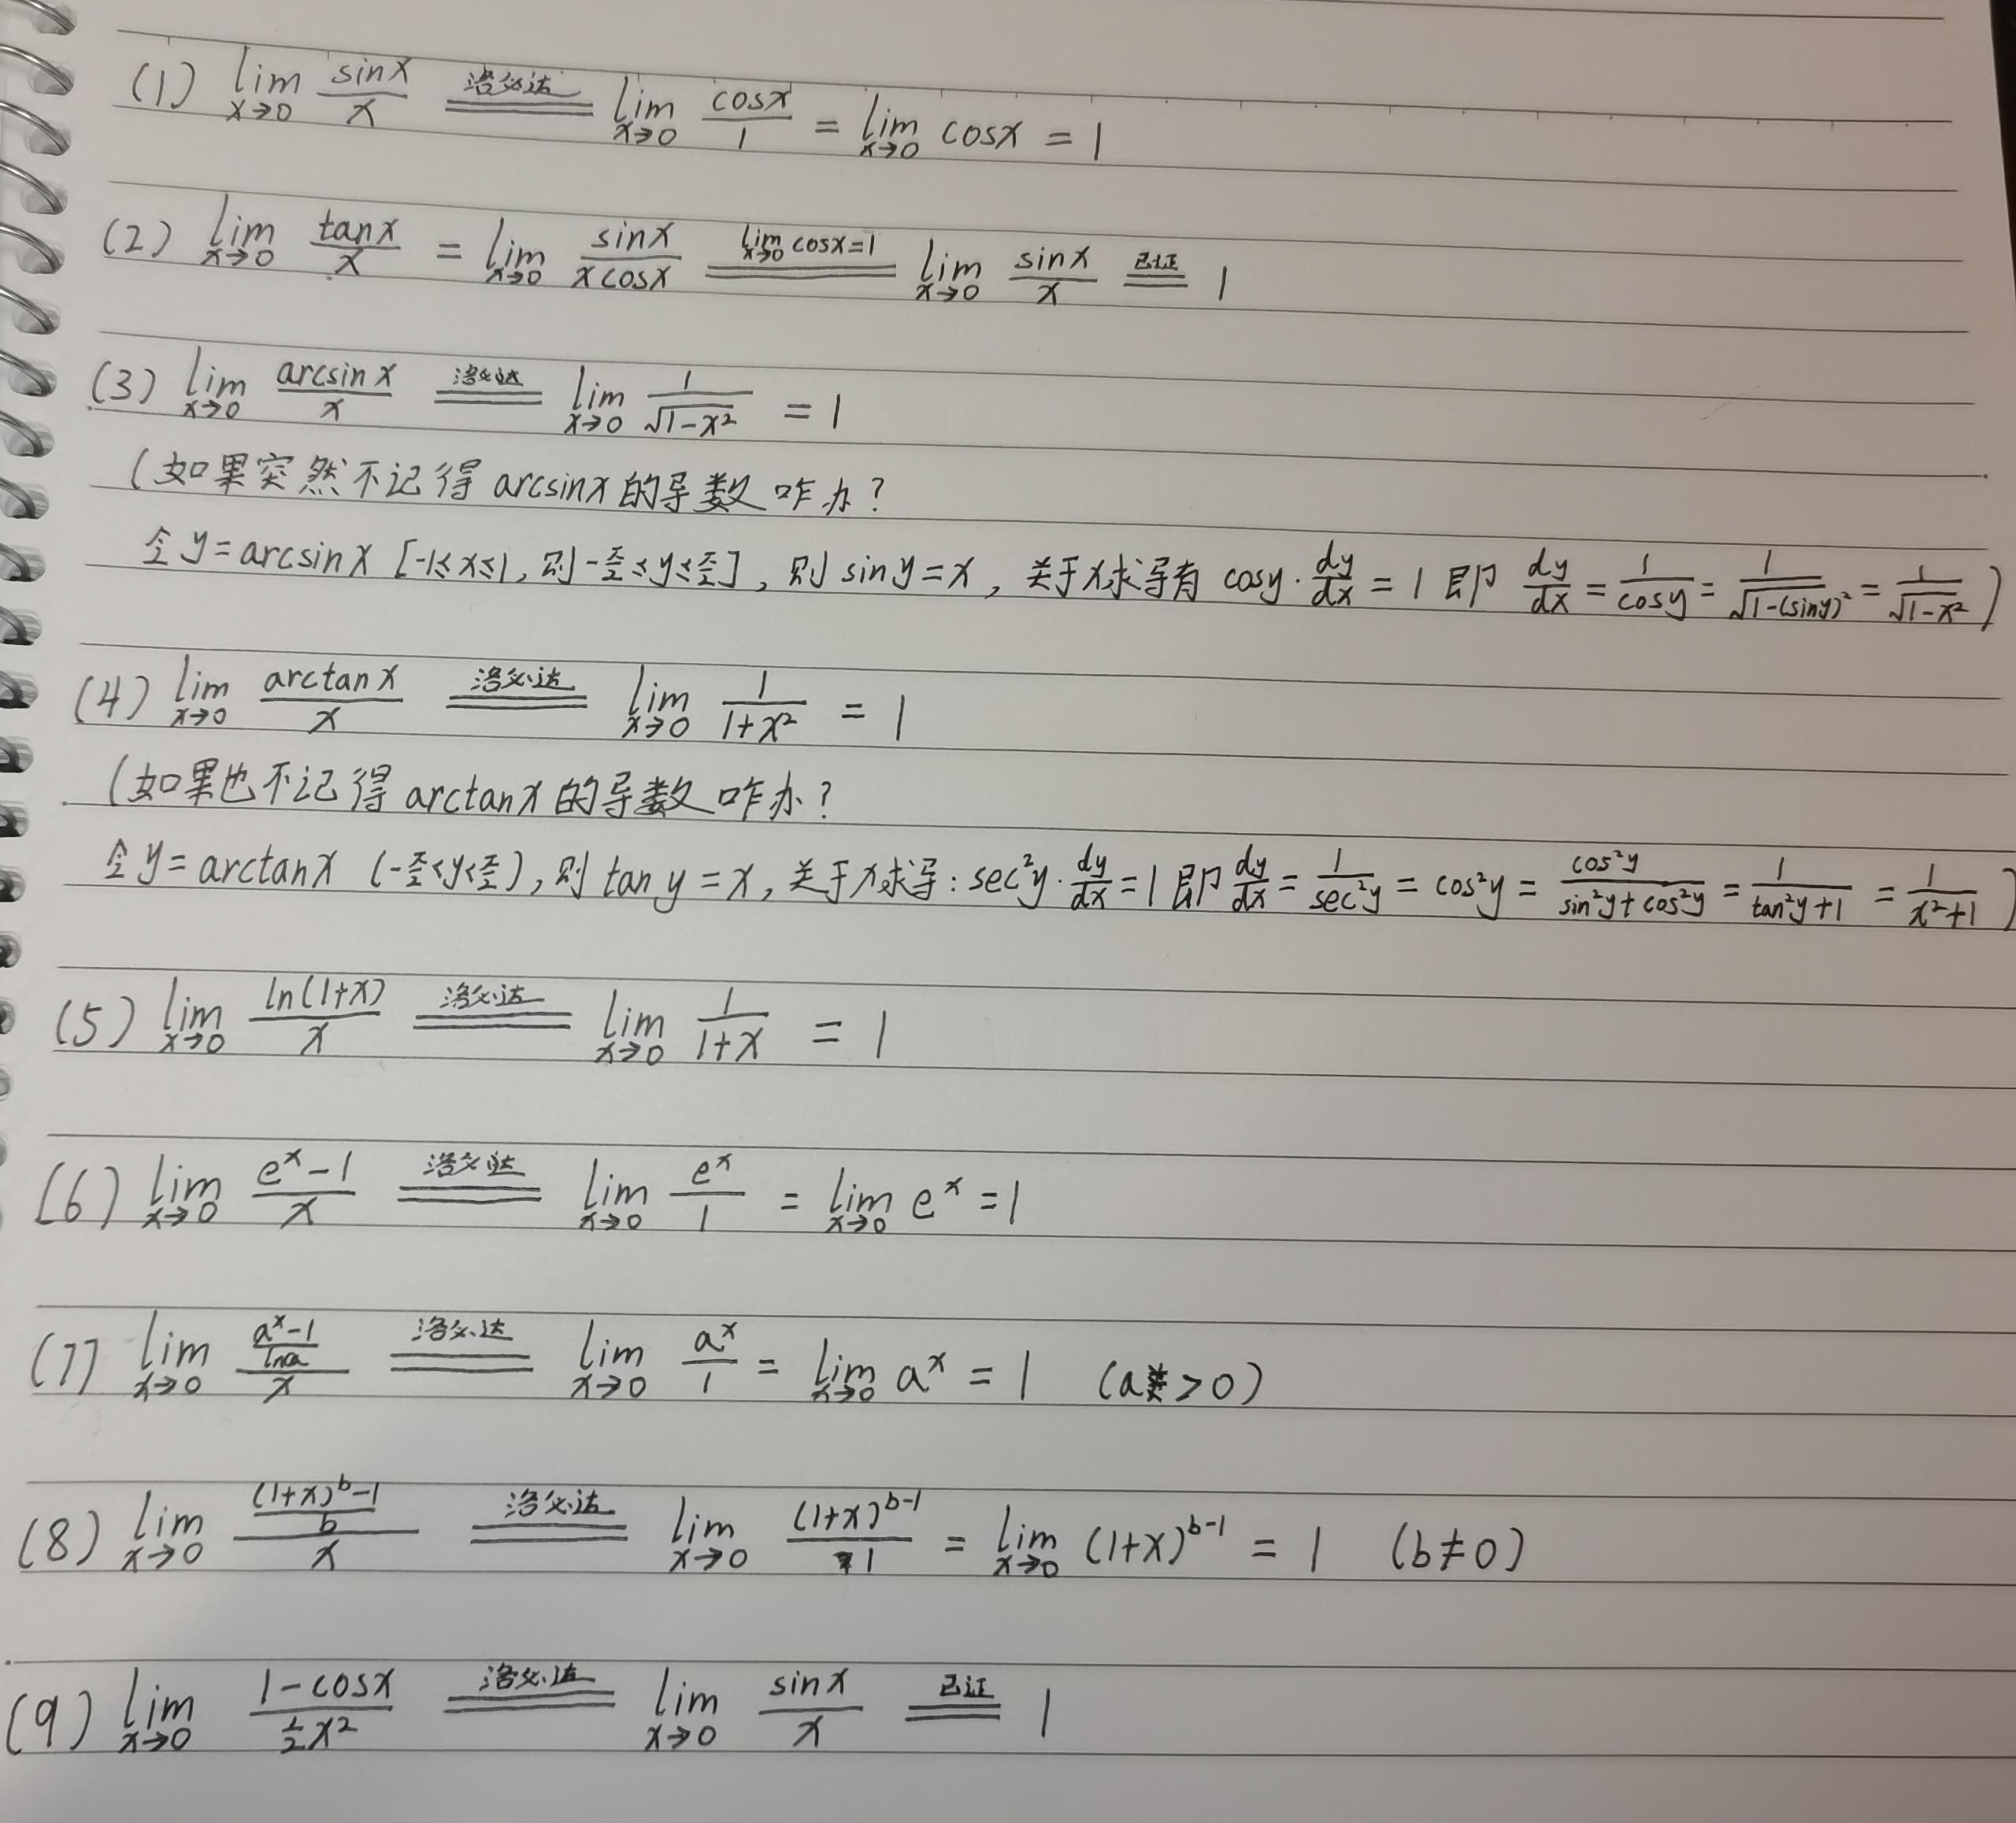 (1) lim x→0 sinx/x 洛必达 == lim x→0 cosx/1 = lim x→0 cosx = 1
(2) lim x→0 tanx/x = lim x→0 sinx/(x cosx) lim x→0 cosx=1 == lim x→0 sinx/x 已证 == 1
(3) lim x→0 arcsinx/x 洛必达 == lim x→0 1/√(1-x²) = 1
(如果突然不记得 arcsinx 的导数咋办?
令 y=arcsinx [-1≤x≤1, 则 -π/2≤y≤π/2], 则 siny=x, 关于x求导有 cosy·dy/dx = 1 即 dy/dx = 1/cosy = 1/√(1-(siny)²) = 1/√(1-x²) )
(4) lim x→0 arctanx/x 洛必达 == lim x→0 1/(1+x²) = 1
(如果也不记得 arctanx 的导数咋办?
令 y=arctanx (-π/2<y<π/2), 则 tany=x, 关于x求导: sec²y·dy/dx=1 即 dy/dx = 1/sec²y = cos²y = cos²y/(sin²y+cos²y) = 1/(tan²y+1) = 1/(x²+1) )
(5) lim x→0 ln(1+x)/x 洛必达 == lim x→0 1/(1+x) = 1
(6) lim x→0 (eˣ-1)/x 洛必达 == lim x→0 eˣ/1 = lim x→0 eˣ = 1
(7) lim x→0 ((aˣ-1)/lna)/x 洛必达 == lim x→0 aˣ/1 = lim x→0 aˣ = 1 (a>0)
(8) lim x→0 (((1+x)^b-1)/b)/x 洛必达 == lim x→0 (1+x)^(b-1)/1 = lim x→0 (1+x)^(b-1) = 1 (b≠0)
(9) lim x→0 (1-cosx)/(½x²) 洛必达 == lim x→0 sinx/x 已证 == 1